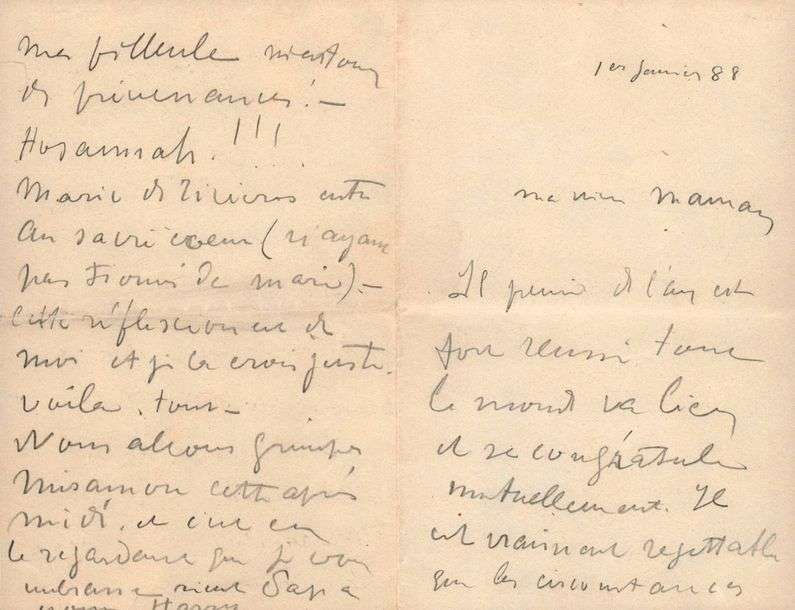 1er janvier 88
ma Maman
premier de l'an est
fort réussi. Tout
le monde va bien
et se congratule
mutuellement. Il
est vraiment regrettable
que les circonstances
ma filleule
de prévenances! —
Hosannah!!!
Marie de Rivières entre
au sacré coeur (n'ayant
pas trouvé de mari). —
Cette réflexion est de
moi et je la crois juste.
Voilà tout —
Nous allons grimper
cette après
midi, et c'est en
le regardant que je vous
embrasse